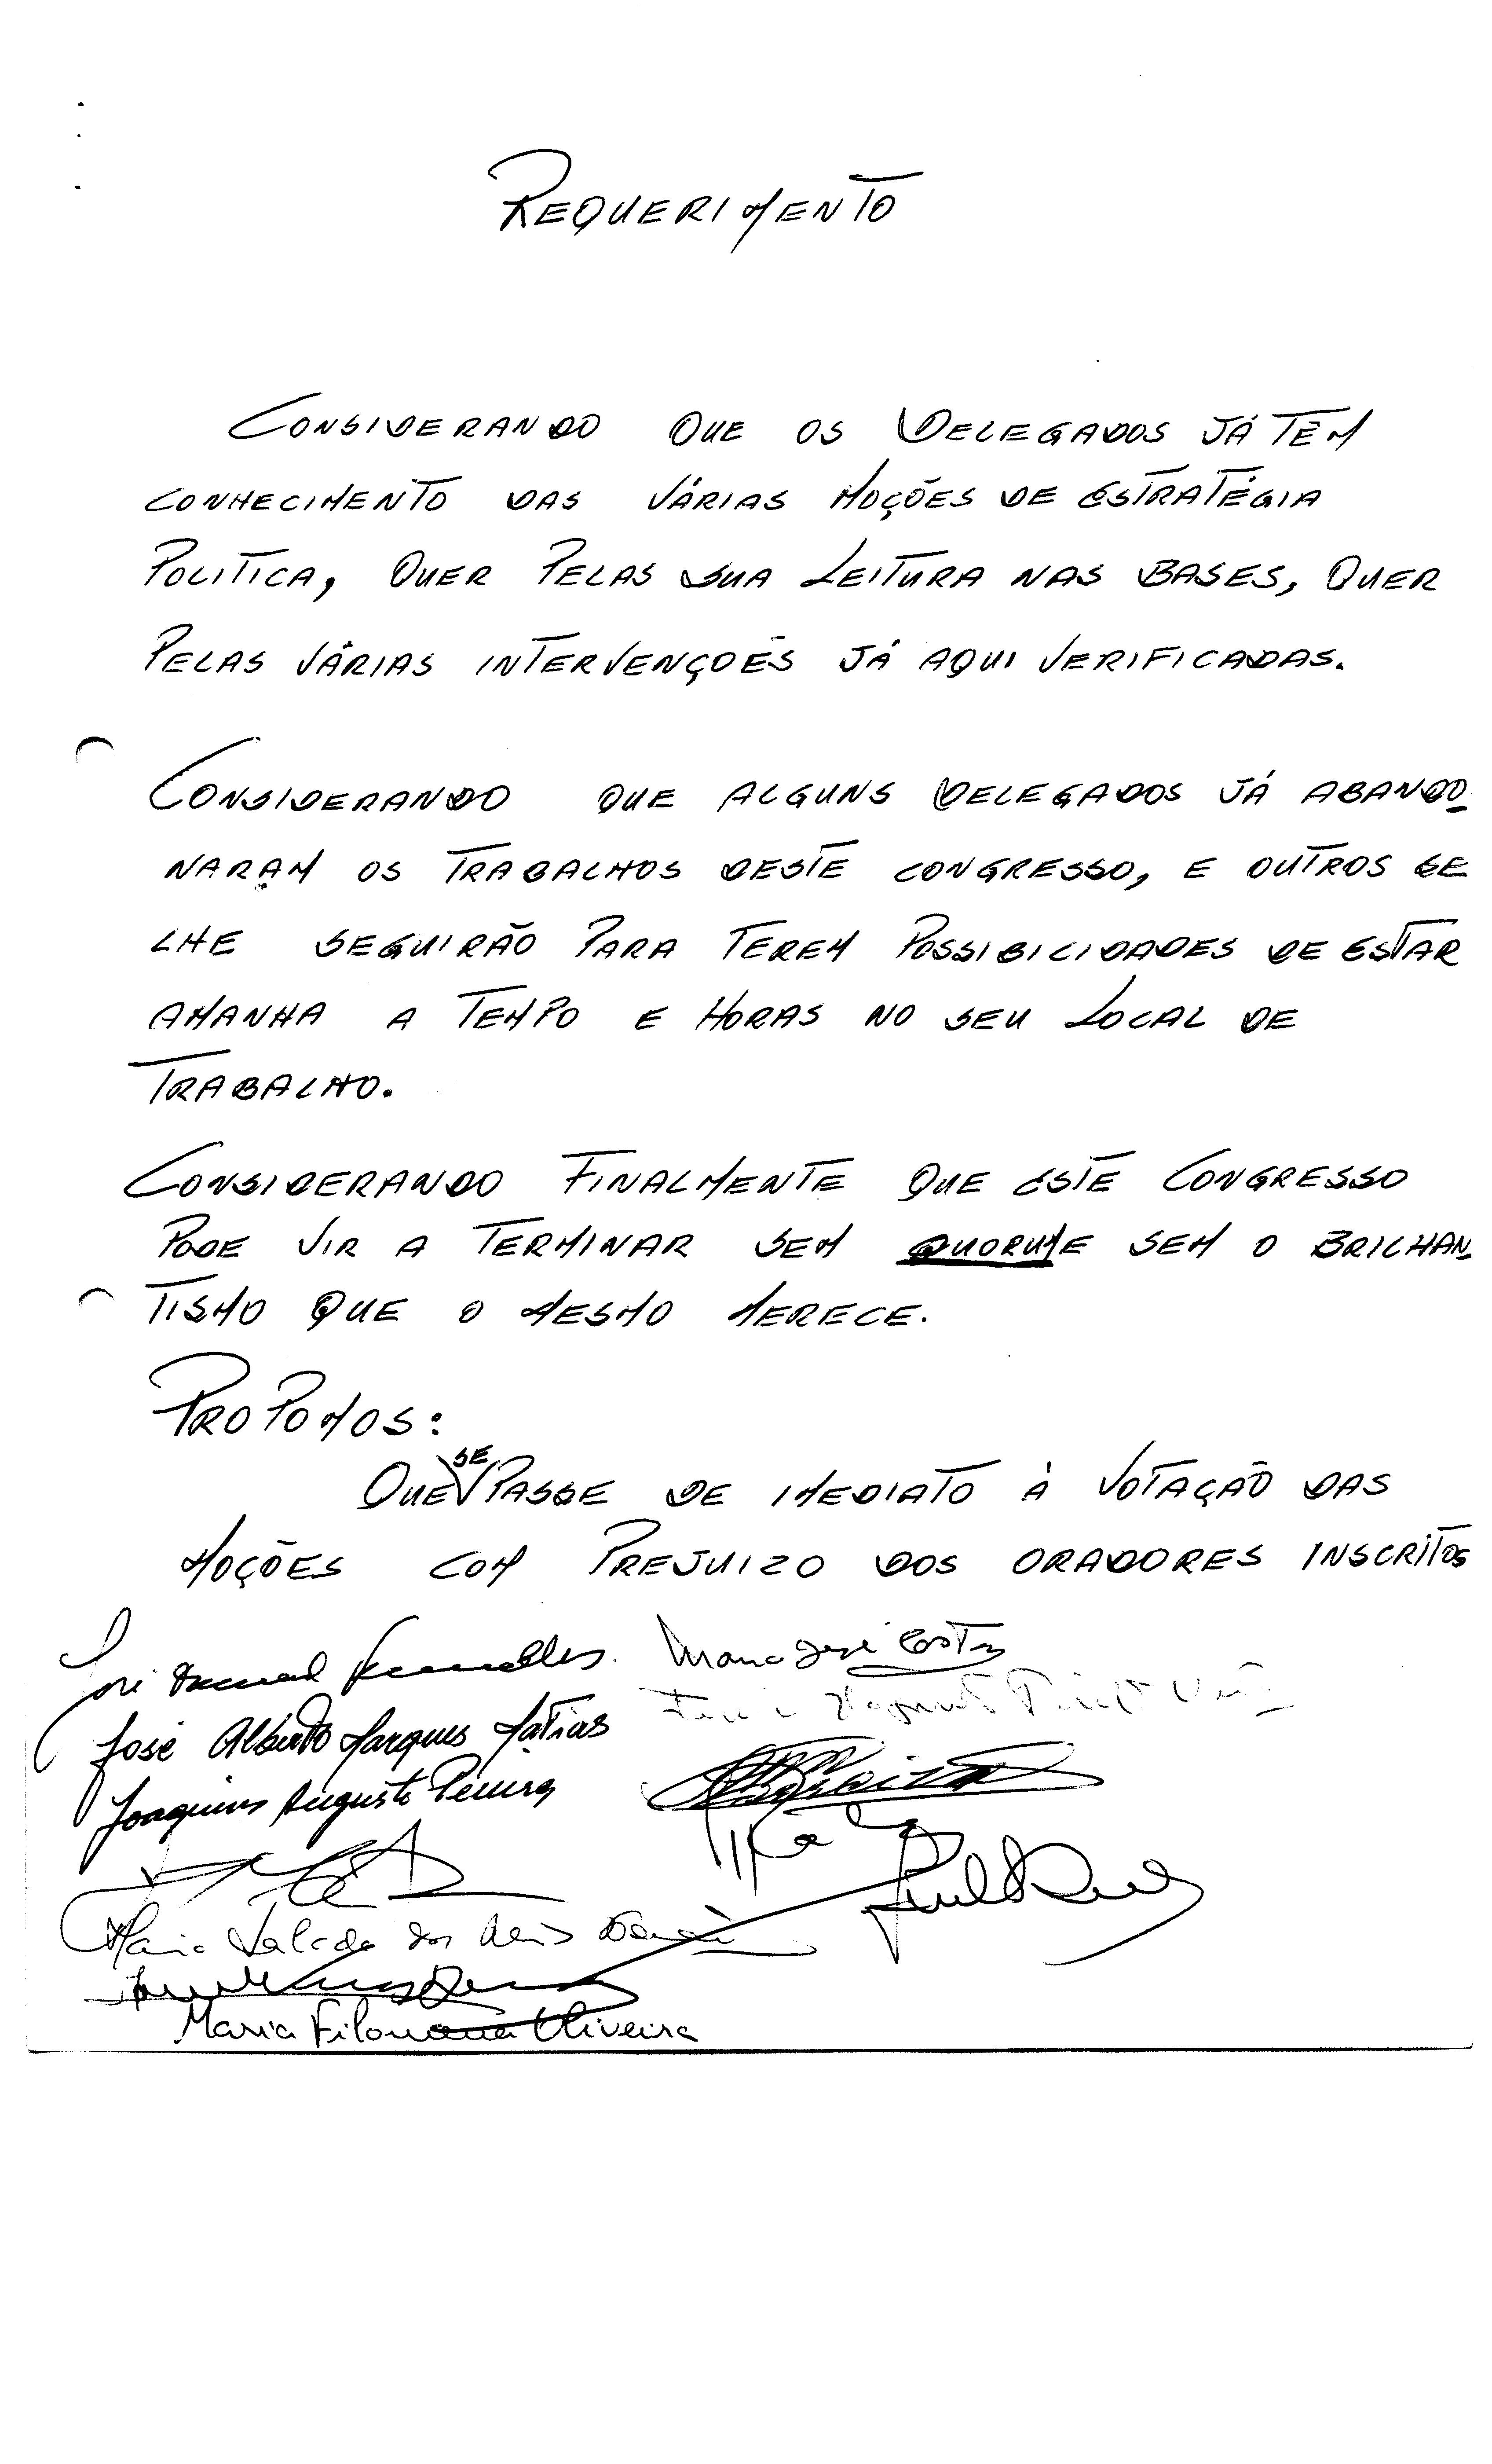 REQUERIMENTO
CONSIDERANDO QUE OS DELEGADOS JÁ TÊM
CONHECIMENTO DAS VÁRIAS MOÇÕES DE ESTRATÉGIA
POLITICA, QUER PELAS SUA LEITURA NAS BASES, QUER
PELAS VÁRIAS INTERVENÇÕES JÁ AQUI VERIFICADAS.
CONSIDERANDO QUE ALGUNS DELEGADOS JÁ ABANDO
NARAM OS TRABALHOS DESTE CONGRESSO, E OUTROS SE
LHE SEGUIRÃO PARA TEREM POSSIBILIDADES DE ESTAR
AMANHA A TEMPO E HORAS NO SEU LOCAL DE
TRABALHO.
CONSIDERANDO FINALMENTE QUE ESTE CONGRESSO
PODE VIR A TERMINAR SEM QUORUM E SEM O BRILHAN
TISMO QUE O MESMO MERECE.
PROPOMOS:
QUE SE PASSE DE IMEDIATO À VOTAÇÃO DAS
MOÇÕES COM PREJUIZO DOS ORADORES INSCRITOS
Maria José Costa
José Alberto Marques Matias
Joaquim Augusto Pereira
Maria dos Reis
Maria Filomena Oliveira